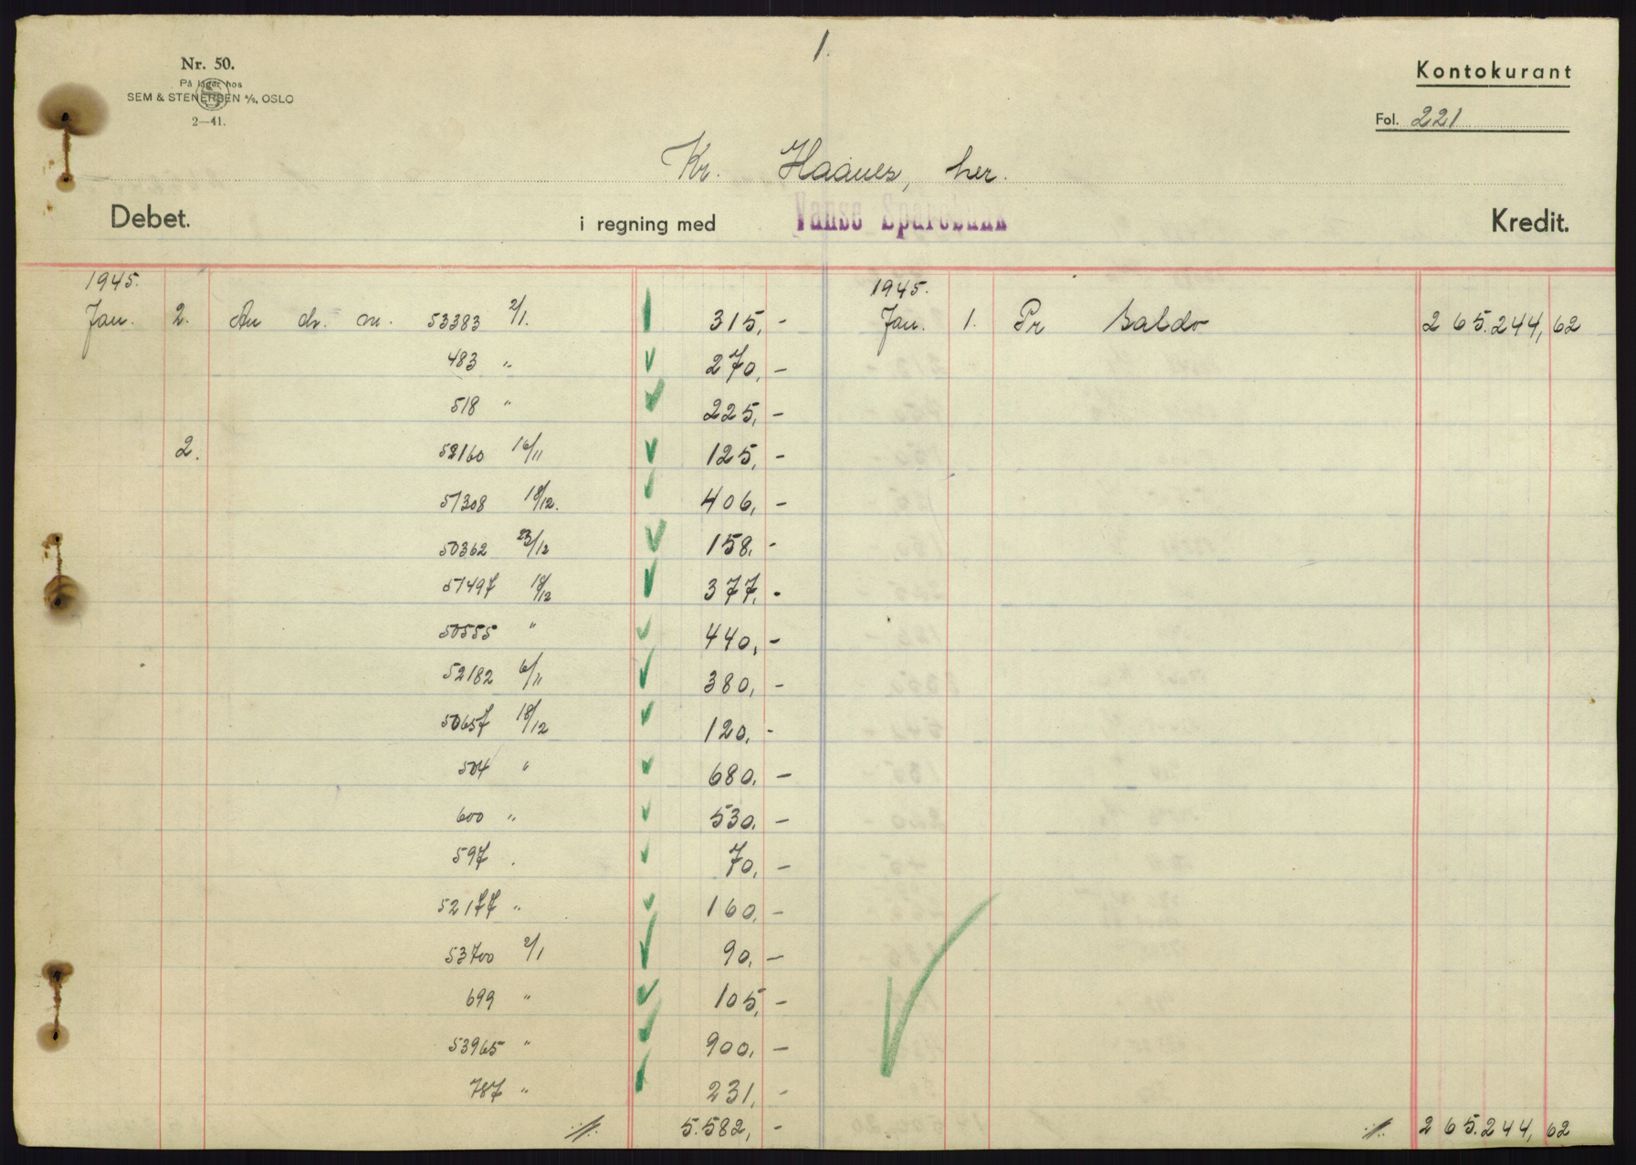 1.
Nr. 50.
På lager hos
SEM & STENERSEN A/S, OSLO
2—41.
Kontokurant
Fol. 221
Kr. Haanes, her.
Debet. i regning med Vanse Sparebank Kredit.
1945. 1945.
Jan. 2. An ch. on. 53383 2/1. 315,- Jan. 1. Pr Saldo 265.244,62
483 " 270,-
518 " 225,-
2. 52160 16/11 125,-
51308 18/12. 406,-
50362 23/12 158,-
51497 18/12 377,-
50555 " 440,-
52182 6/11 380,-
50657 18/12 120,-
504 " 680,-
600 " 530,-
597 . 70,-
52177 " 160,-
53700 2/1 90,-
699 " 105,-
53965 " 900,-
787 " 231,-
5.582,- 265.244,62